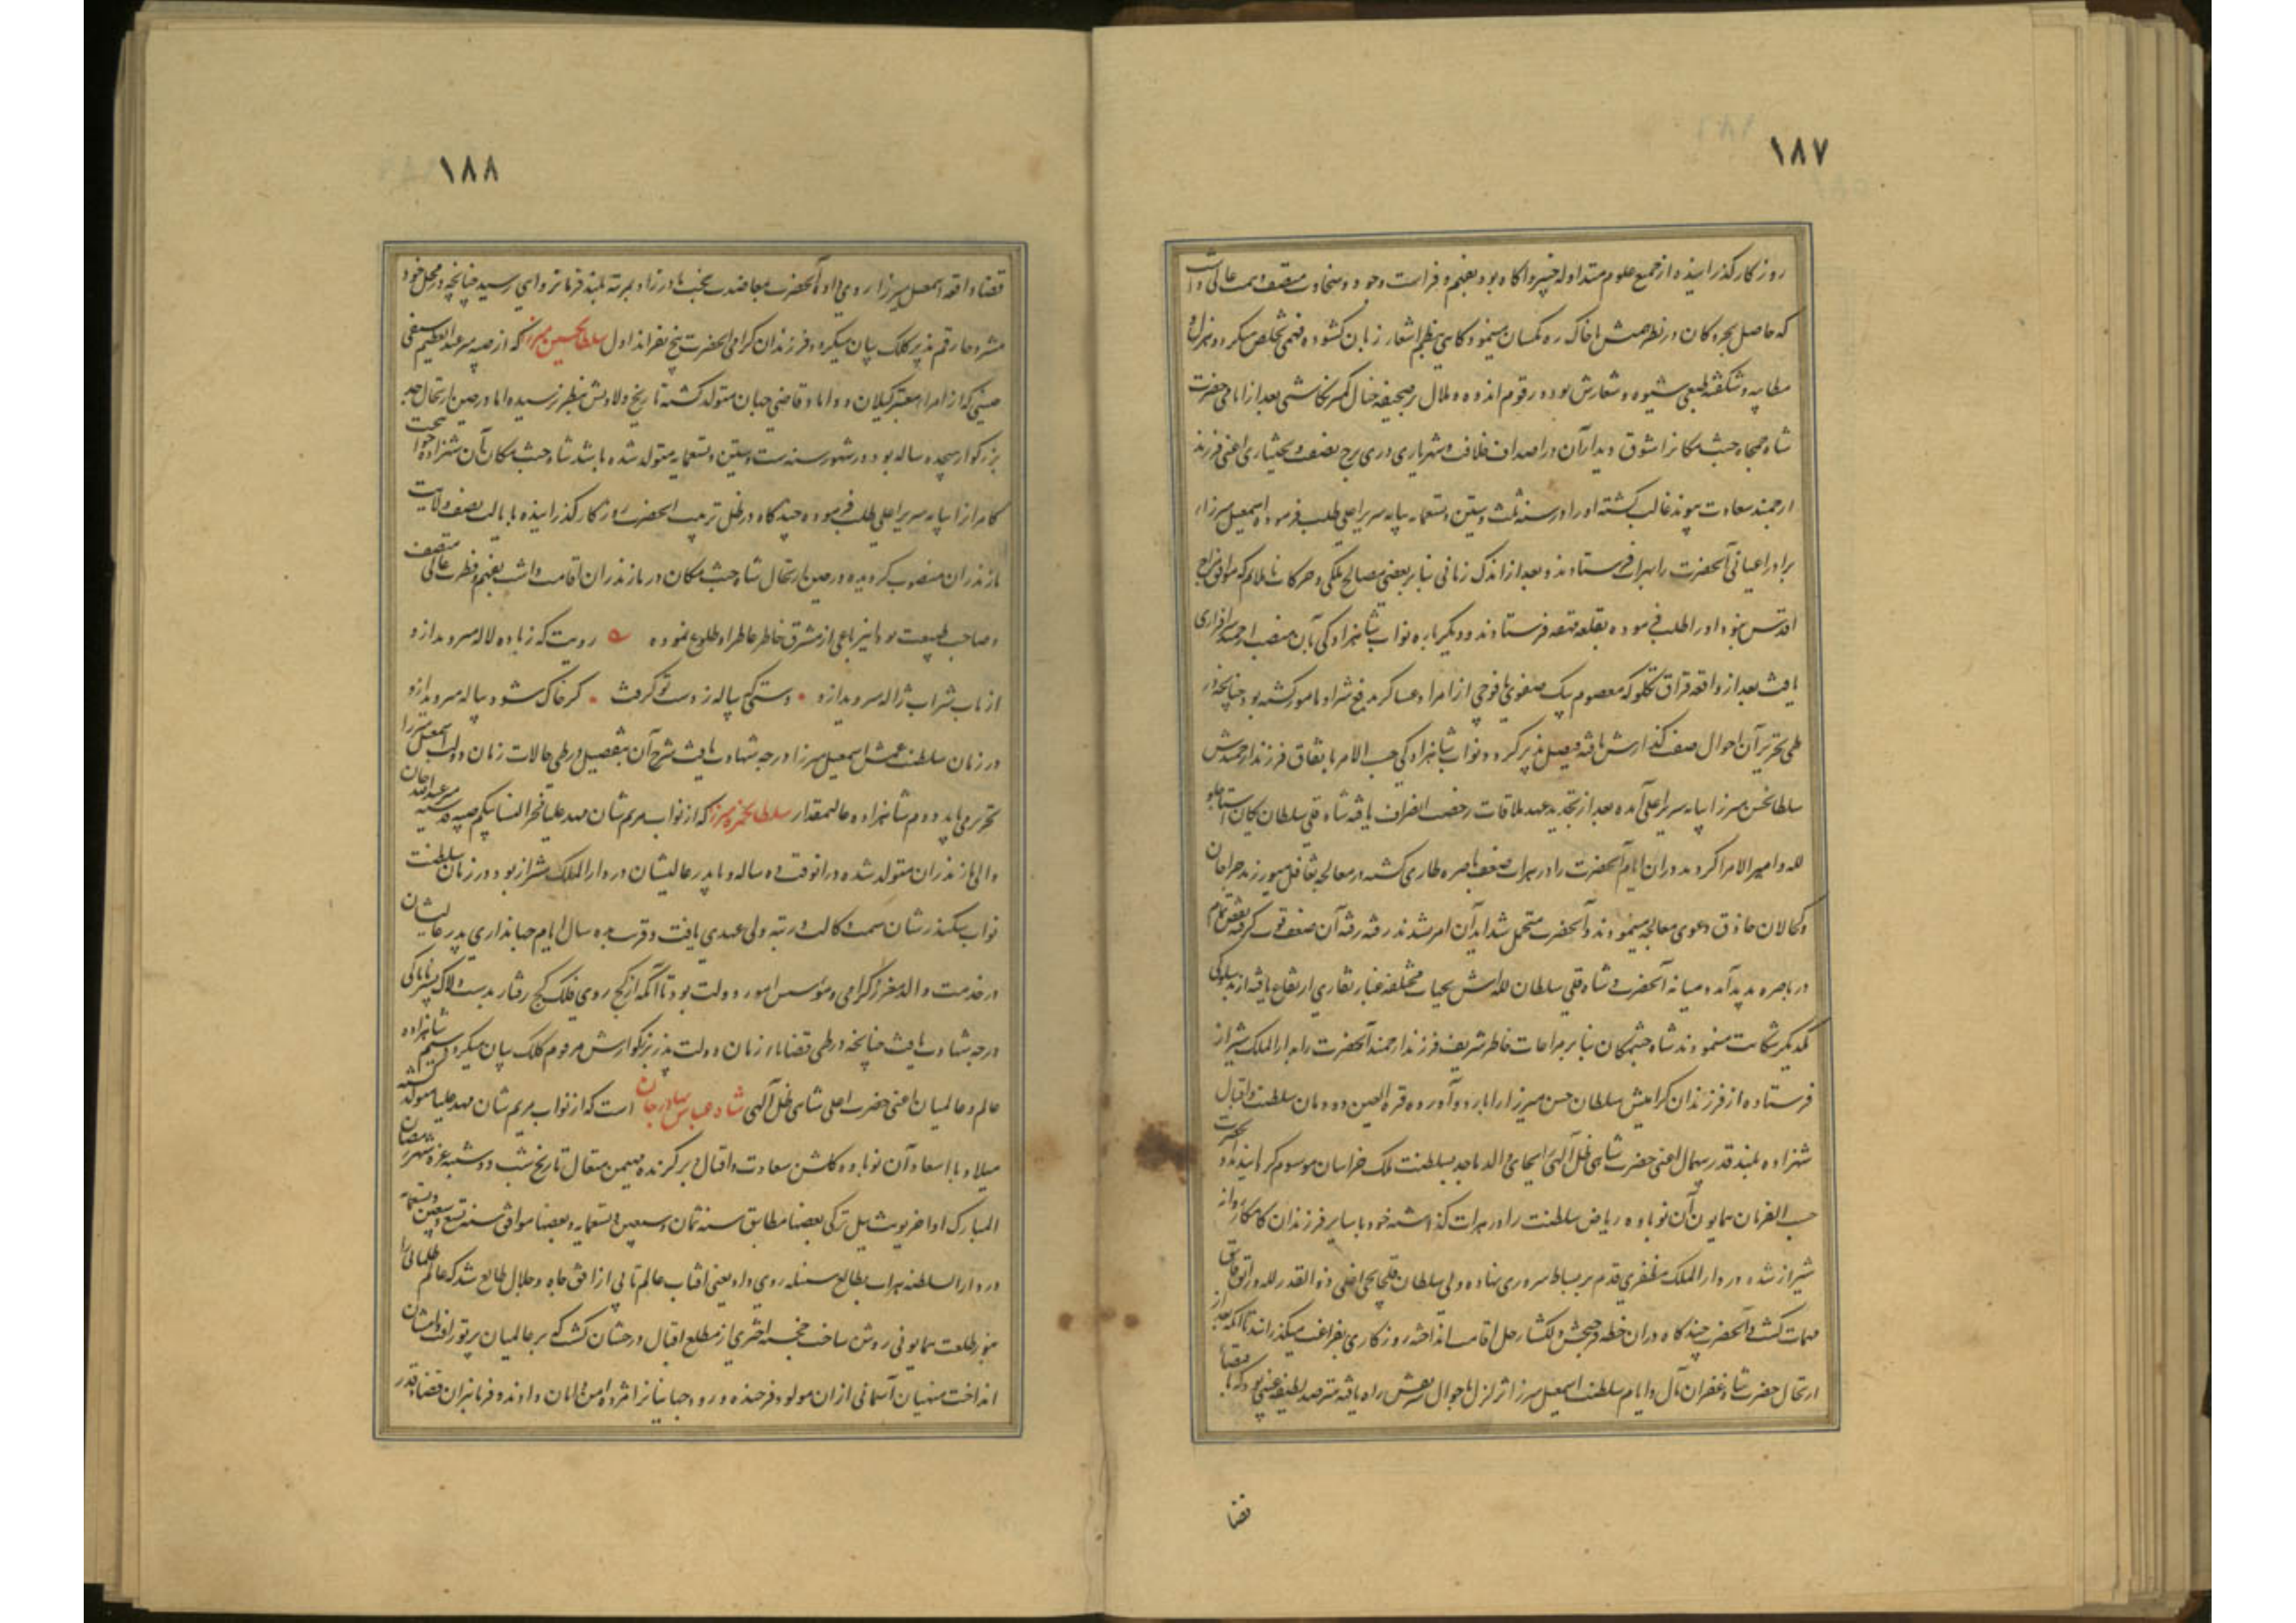 ١٨٧
روزگار گذرانیده از جمیع علوم متداوله خبیر و آگاه بود بفهم و فراست و جود و سخاوت متصف و همت عالی داشت
که حاصل بحر و کان در نظر همتش با خاک ره یکسان مینمود و گاهی بنظم اشعار زبان گشوده فهمی تخلص میکرد و هزل و
مطایبه و شکفته طبعی شیوه و شعارش بوده رقوم اندوه و ملال بر صحیفه خیال کمتر نگاشتی بعد از اندک حضرت
شاه جمجاه جنت مکان را شوق دیدار آن در اصداف خلافت و شهریاری دری برج نصفت و بختیاری اعنی فرزند
ارجمند سعادت پیوند غالب گشته او را در سنه ثلث و ستین و تسعمایه بپایه سریر اعلی طلب فرموده اسمعیل میرزا
برادر اعیانی آنحضرت را بهراة فرستادند و بعد از اندک زمانی بنا بر بعضی مصالح ملکی و حرکات ناملایم که موافق مزاج
اقدس نبود او را طلب فرموده بقلعه قهقهه فرستادند و دیگر باره نواب شاهزادگی بآن منصب ارجمند سرافرازی
یافت بعد از واقعه قزاق تکلو که معصوم بیک صفوی با فوجی از امرا و عساکر بدفع شر او مامور گشته بود چنانچه در
طی تحریر آن احوال صفت گذارش یافته فیصل پذیر گردد نواب شاهزادگی حسب الامر باتفاق فرزند ارجمندش
سلطان حسن میرزا بپایه سریر اعلی آمده بعد از تجدید عهد ملاقات رخصت انصراف یافته شاه قلی سلطان یکان استاجلو
لله و امیر الامرا گردید در آن ایام آنحضرت را در هرات ضعف باصره طاری گشته در معالجه تغافل میورزید جراحان
و کحالان حاذق دعوی معالجه مینمودند و آنحضرت متحمل شداید آن امر نشدند رفته رفته آن ضعف قوت گرفته نقص تمام
در باصره پدید آمد و میانه آنحضرت و شاه قلی سلطان لله اش بجهات مختلفه غبار نقاری ارتفاع یافته از بدسلوکی
یکدیگر شکایت مینمودند شاه جنت مکان بنا بر مراعات خاطر شریف فرزند ارجمند آنحضرت را بدار الملک شیراز
فرستاده از فرزندان گرامیش سلطان حسن میرزا را باردو آورده قرة العین دودمان سلطنت و اقبال
شهزاده بلند قدر بیهمال اعنی حضرت شاهی ظل آلهی را بجای والد ماجد بسلطنت ملک خراسان موسوم گردانیدند و آنحضرت
حسب الفرمان همایون آن نوباوه ریاض سلطنت را در هرات گذاشته خود با سایر فرزندان کامکار روانه
شیراز شده در دار الملک مظفری قدم بر بساط سروری نهاده ولی سلطان قلخانچی اغلی ذو القدر لله و رتق و فتق
مهمات گشت و آنحضرت چند گاه در آن خطه فرحبخش دلگشا رحل اقامت انداخته روزگاری بفراغت میگذرانید تا آنکه بعد از
ارتحال حضرت شاه غفران مآل و ایام سلطنت اسمعیل میرزا تزلزل باحوال شریفش راه یافته مترصد لطیفه غیبی بود که ناگاه
قضا
١٨٨
قضا واقعه اسمعیل میرزا روی داد و آنحضرت بمعاضدت بخت مادرزاد بمرتبه بلند فرمانروایی رسید چنانچه در محل خود
مشروحا رقم پذیر کلک بیان میگردد فرزندان گرامی آنحضرت پنج نفراند اول سلطان حسین میرزا که از صبیه میر عبد العظیم سیفی
حسینی که از امراء معتبر گیلان و داماد قاضی جهان متولد گشته تاریخ ولادتش بنظر نرسیده اما در حین ارتحال جد
بزرگوار هجده ساله بود در شهور سنه ست و ستین و تسعمایه متولد شده باشد شاه جنت مکان آن شهزاده جوانبخت
کامران را بپایه سریر اعلی طلب فرموده چند گاه در ظل تربیت آنحضرت روزگار گذرانیده بایالت نصف ولایت
مازندران منصوب گردیده در حین ارتحال شاه جنت مکان در مازندران اقامت داشت بفهم و فطرت عالی متصف
و صاحب طبیعت بود این رباعی از مشرق خاطر عاطر او طلوع نموده رویت که ز باده لاله میروید ازو
از تاب شراب ژاله میروید ازو • دستی که پیاله ز دست تو گرفت • گر خاک شود پیاله میروید ازو
در زمان سلطنت عمش اسمعیل میرزا درجه شهادت یافت شرح آن بتفصیل در طی حالات زمان دولت اسمعیل میرزا
تحریر می یابد دوم شاهزاده عالیمقدار سلطان حمزه میرزا که از نواب مریم شان مهد علیا فخر النسا بیکم صبیه قدسیه میر عبدالله خان
والی مازندران متولد شده در آنوقت ده ساله و با پدر عالیشان در دار الملک شیراز بود در زمان سلطنت
نواب سکندر شان سمت وکالت و رتبه ولی عهدی یافت و قرب ده سال ایام جهانداری پدر عالیشان
در خدمت والد معزز گرامی و مؤسس امور دولت بود تا آنکه از کج روی فلک کج رفتار بدست دلاک پسر ناپاکی
درجه شهادت یافت چنانچه در طی قضایاء زمان دولت پدر بزرگوارش مرقوم کلک بیان میگردد سیم شاهزاده
عالم و عالمیان اعنی حضرت اعلی شاهی ظل آلهی شاه عباس بهادر خان است که از نواب مریم شان مهد علیا متولد گشته
میلاد با اسعاد آن نوباوه گلشن سعادت و اقبال و برگزیده مهیمن متعال تاریخ شب دوشنبه غره شهر رمضان
المبارک اواخر یونت ئیل ترکی بعضا مطابق سنه ثمان و سبعین و تسعمایه و بعضا موافق سنه تسع و سبعین و تسعمایه
در دار السلطنه هرات بطالع سنبله روی داد یعنی افتاب عالم تابی از افق جاه و جلال طالع شد که عالم ظلمانی را
بنور طلعت همایونی روشن ساخت خجسته اختری از مطلع اقبال درخشان گشت که بر عالمیان پرتو رافت و امتنان
انداخت منهیان آسمانی از آن مولود فرخنده ورود جهانیان را مژده امن و امان دادند و فرمانبران قضا و قدر